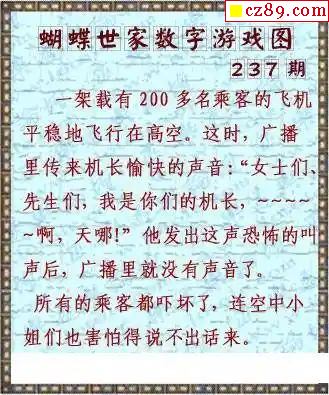 cz89.com
蝴蝶世家数字游戏图
237期
一架载有200多名乘客的飞机
平稳地飞行在高空。这时，广播
里传来机长愉快的声音：“女士们、
先生们，我是你们的机长，~~~~~
~啊，天哪！”他发出这声恐怖的叫
声后，广播里就没有声音了。
所有的乘客都吓坏了，连空中小
姐们也害怕得说不出话来。